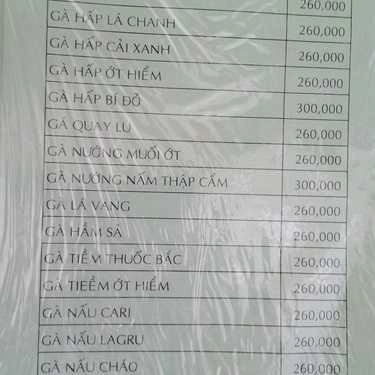 260,000
GÀ HẤP LÁ CHANH 260,000
GÀ HẤP CẢI XANH 260,000
GÀ HẤP ỚT HIỂM 260,000
GÀ HẤP BÍ ĐỎ 300,000
GÀ QUAY LU 260,000
GÀ NƯỚNG MUỐI ỚT 260,000
GÀ NƯỚNG NẤM THẬP CẨM 300,000
GÀ LÁ VANG 260,000
GÀ HẦM SẢ 260,000
GÀ TIỀM THUỐC BẮC 260,000
GÀ TIEỀM ỚT HIỂM 260,000
GÀ NẤU CARI 260,000
GÀ NẤU LAGRU 260,000
GÀ NẤU CHÁO 260,000